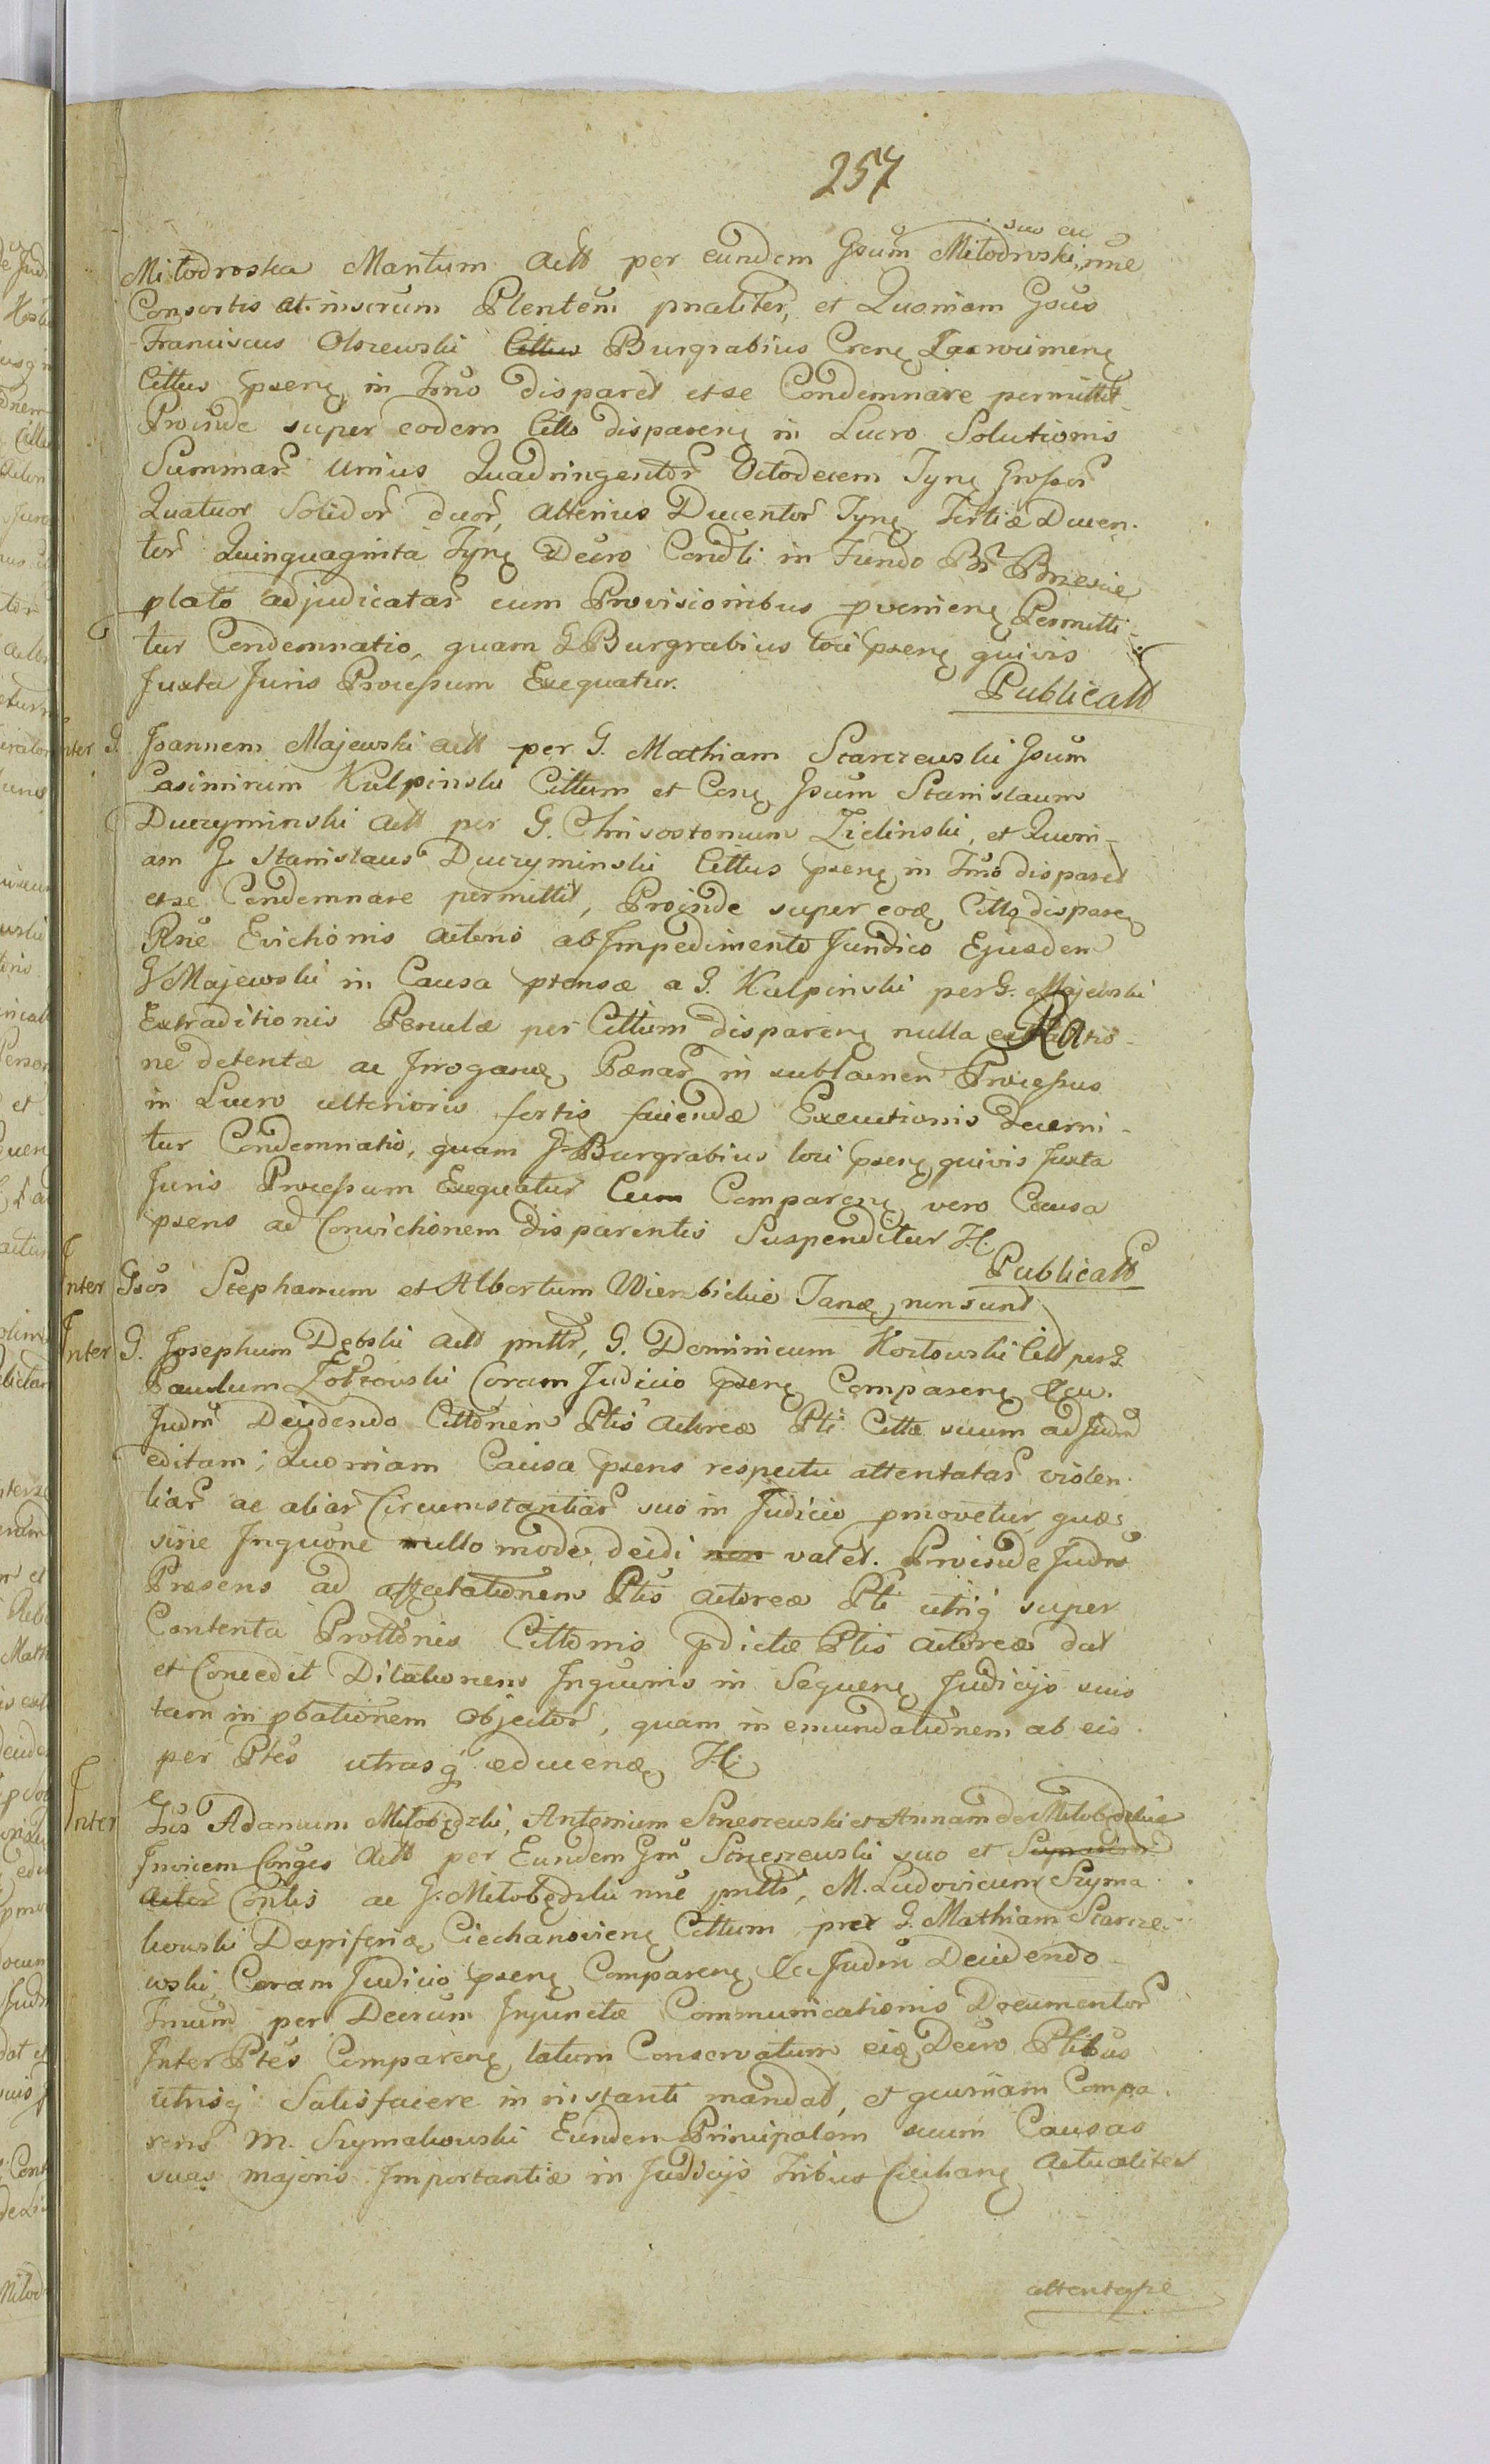 257
suo ac
Milodroska Maritum Actt per eundem Gsum Milodroski, nne
Consortis at. inscrum Plentem pnaliter, et Quoniam Gsus
Franciscus Olszewski Cittus Burgrabius Crenę
Cittus psenę in Tnno disparet et se Condemnare permittit
Proinde super eodem Citto disparenę in Lucro Solutionis
Summar Unius Quadringentor Octodecem Tynę Grossor
Quatuor Solidor duor, Alterius Ducentor Tynę Tertiæ Ducen-
tor Quinquaginta Tynę Decro Condli in Fundo Br Brzesie
plato adjudicatar cum Provisionibus pvenienę Permitti-
tur Condemnatio, quam G Burgrabius loci psenę quivis
Juxta Juris Processum Exequatur. Publicatt
Inter G. Joannem Majewski Actt per G. Mathiam Starczewski Gsum
Casimirum Kulpinski Cittum et Conę Gsum Stanislaum
Duczyminski Actt per G. Chrisostomum Zielinski, et Quoni-
am G Stanislaus Duczyminski Cittus psenę in Tnno disparet
et se Condemnare permittit, Proinde super eodę Citto disparenę
Rne Evictionis Actoris ab Impedimento Juridico Ejusdem
G Majewski in Causa ptensæ a G. Kulpinski per G. Majewski
Extraditionis Penulæ per Cittum disparenę nulla ex Ratio-
ne detentæ ac Irrogandę Pænar in sublamen Processus
in Lucro ulterioris fortis faciendæ Executionis decerni-
tur Condemnatio, quam G Burgrabius loci psenę quivis Juxta
Juris Processum Exequatur Cum Comparenę vero Causa
psens ad Convictionem disparentis Suspenditur H.
Publicatt
Inter Gsos Stephanum et Albertum Wierzbickie Tanæ, non sunt
Inter G. Josephum Dębski Actt pnttr, G. Dominicum Kozłowski Citt per G.
Paulum Zołzowski Coram Judicio psenę Comparenę &cu.
Judm Decidendo Cittonem Ptis Actoreæ Pti Cittæ suum ad Judm
editam; Quoniam Causa psens respectu attentatar violen-
tiar ac aliar Circumstantiar suo in Judicio pmovetur, quæ
sine Inquone nullo modo decidi non valet. Proinde Judm
Præsens ad affectationem Ptis Actoreæ Pti utriq super
Contenta Prottonis Cittonis pdictæ Ptis Actoreæ dat
et Concedit Dilationem Inquonis in Sequenę Judicijs suis
tam in pbationem Objector, quam in emundationem ab eis
per Ptes utrasq educendę H.
Inter Gsos Adamum Miłobędzki, Antonium Strzeszewski et Annam de Miłobędzkie
Invicem Conges Actt per Eundem Gm Strzeszewski suo et
Actor Contis ac G. Miłobędzki nne pnttr, M. Ludovicum Szyma-
kowski Dapiferię Ciechanovienę Cittum per G. Mathiam Starcze-
wski, Coram Judicio psenę Comparenę &c Judm Decidendo
Tnnum per Decrum Injunctæ Communicationis Documentor
Inter Ptes Comparenę latum Conservatum eiæ Decro Ptibus
utrisq Satisfacere in instanti mandat, et quoniam Compa-
rens M. Szymakowski Eundem Principalem suum Causas
suas majoris Importantiæ in Judicijs Tribus Ciechanę Actualiter
attentasse